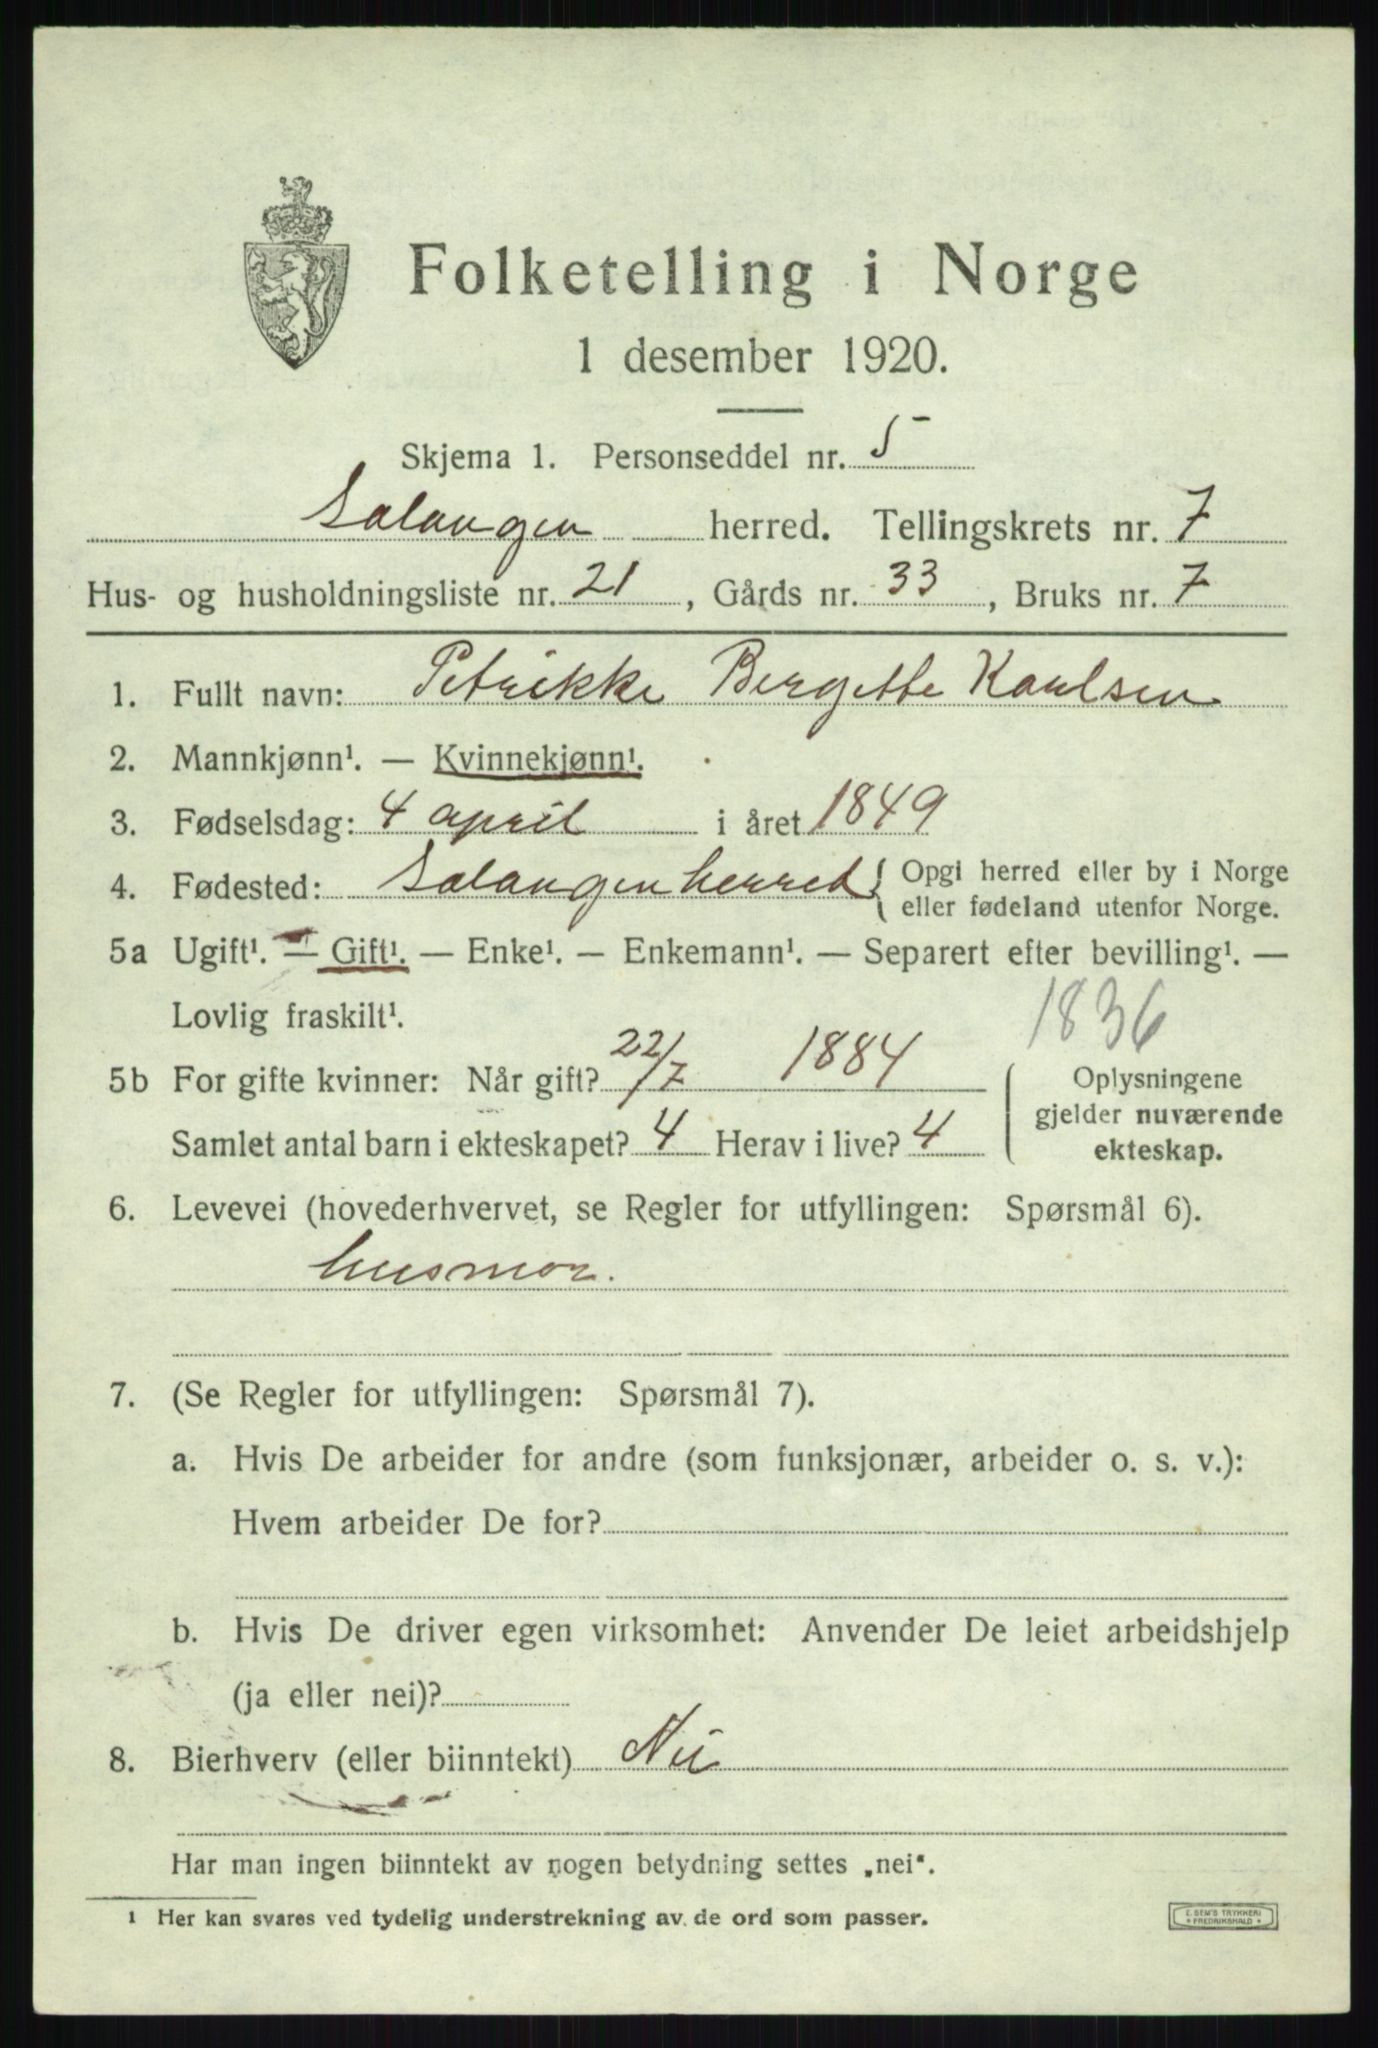 Folketelling i Norge
1 desember 1920.
Skjema 1. Personseddel nr. 5
Salangen herred. Tellingskrets nr. 7
Hus- og husholdningsliste nr. 21, Gårds nr. 33, Bruks nr. 7
1. Fullt navn: Petrikke Bergette Karlsen
2. Mannkjønn¹. — Kvinnekjønn¹.
3. Fødselsdag: 4 april i året 1849
4. Fødested: Salangen herred { Opgi herred eller by i Norge
eller fødeland utenfor Norge.
5a Ugift¹. — Gift¹. — Enke¹. — Enkemann¹. — Separert efter bevilling¹. —
Lovlig fraskilt¹.
1836
5b For gifte kvinner: Når gift? 22/7 1884
Samlet antal barn i ekteskapet? 4 Herav i live? 4
Oplysningene
gjelder nuværende
ekteskap.
6. Levevei (hovederhvervet, se Regler for utfyllingen: Spørsmål 6).
husmor.
7. (Se Regler for utfyllingen: Spørsmål 7).
a. Hvis De arbeider for andre (som funksjonær, arbeider o. s. v.):
Hvem arbeider De for?
b. Hvis De driver egen virksomhet: Anvender De leiet arbeidshjelp
(ja eller nei)?
8. Bierhverv (eller biinntekt) Nei
Har man ingen biinntekt av nogen betydning settes „nei“.
¹ Her kan svares ved tydelig understrekning av de ord som passer.
E. SEM'S TRYKKERI
* FREDRIKSHALD *